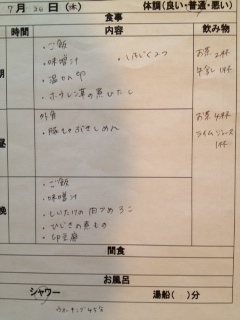 7月20日(水) 体調(良い・普通・悪い)
食事
時間 内容 飲み物
朝
・ご飯
・味噌汁
・温せん卵
・ホウレン草の煮びたし
お茶2杯
牛乳1杯
昼
外食
・豚しゃぶきしめん
お茶4杯
ライムジュース
1杯
晩
・ご飯
・味噌汁
・しいたけの肉ごめろこ
・ひじきの煮もの
・卵豆腐
間食
お風呂
シャワー 湯船( )分
ウォーキング45分